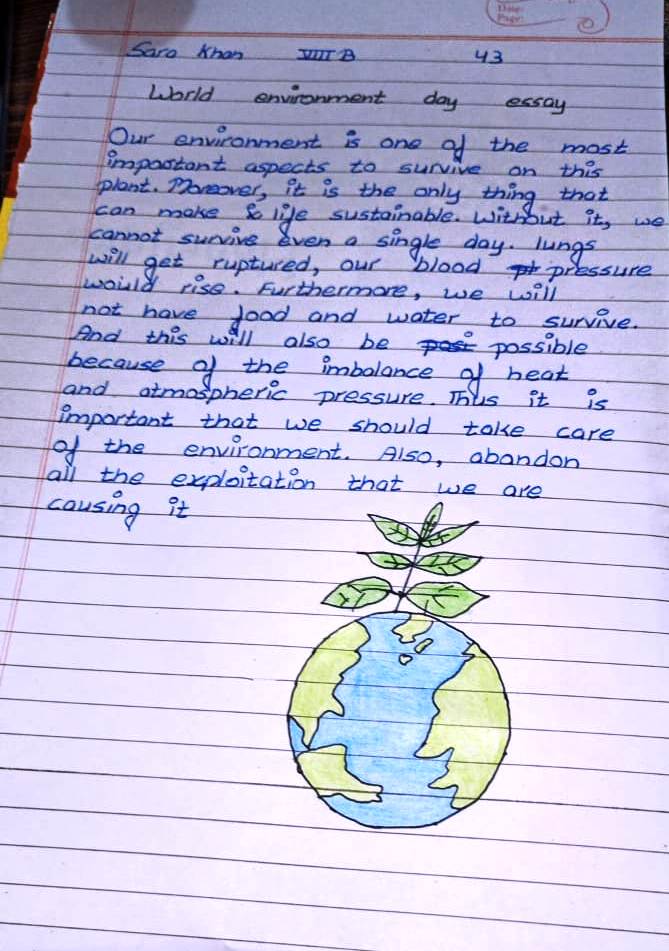 Date:
Page:
Sara Khan VIII B 43
World environment day essay
Our environment is one of the most
impoatant aspects to survive on this
plant. Moreover, it is the only thing that
can make life sustainable. Without it, we
cannot survive even a single day. lungs
will get ruptured, our blood pressure
would rise. Furthermore, we will
not have food and water to survive.
And this will also be possible
because of the imbalance of heat
and atmospheric pressure. Thus it is
important that we should take care
of the environment. Also, abandon
all the exploitation that we are
causing it